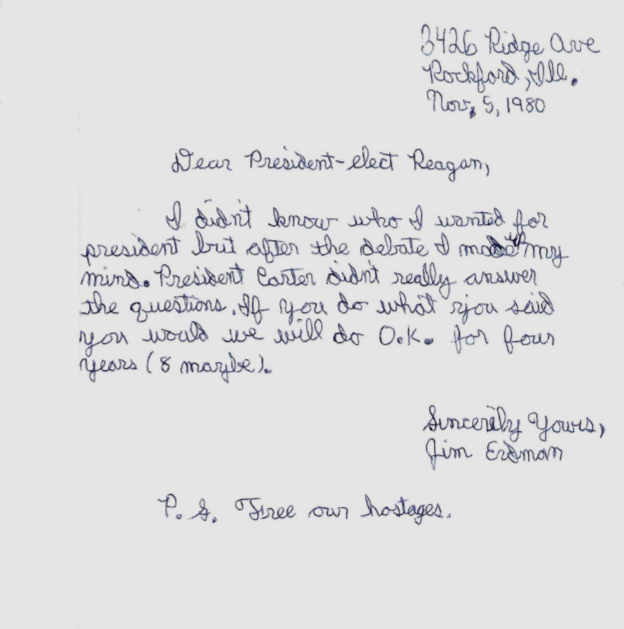 3426 Ridge Ave
Rockford, Ill.
Nov, 5, 1980
Dear President-elect Reagan,
I didn't know who I wanted for
president but after the debate I made up my
mind. President Carter didn't really answer
the questions. If you do what you said
you would we will do O.K. for four
years (8 maybe).
Sincerily Yours,
Jim Erdman
P. S. Free our hostages.